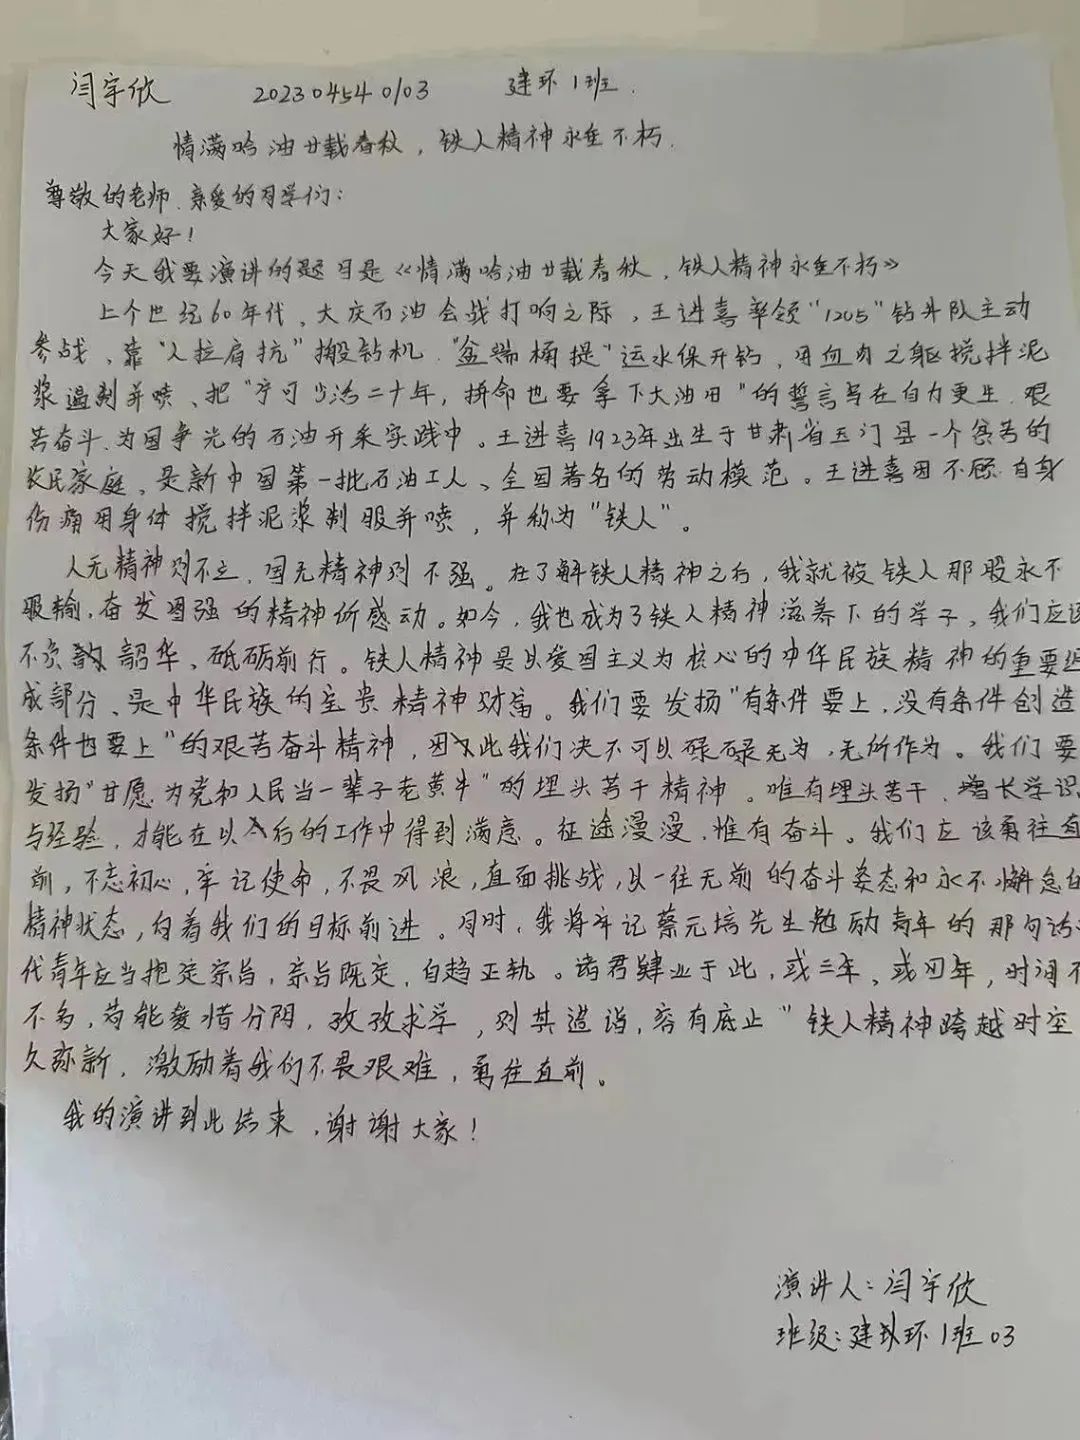 闫宇欣 202304540103 建环1班.
情满哈油廿载春秋，铁人精神永垂不朽.
尊敬的老师、亲爱的同学们：
大家好！
今天我要演讲的题目是《情满哈油廿载春秋，铁人精神永垂不朽》
上个世纪60年代、大庆石油会战打响之际，王进喜率领“1205”钻井队主动
参战、靠“人拉肩抗”搬钻机、“盆端桶提”运水保开钻，用血肉之躯搅拌泥
浆遏制井喷、把“宁可少活二十年，拼命也要拿下大油田”的誓言写在自力更生、艰
苦奋斗、为国争光的石油开采实践中。王进喜1923年出生于甘肃省玉门县一个穷苦的
农民家庭、是新中国第一批石油工人、全国著名的劳动模范。王进喜因不顾自身
伤痛用身体搅拌泥浆制服井喷，并称为“铁人”。
人无精神则不立、国无精神则不强。在了解铁人精神之后，我就被铁人那股永不
服输、奋发图强的精神所感动。如今，我也成为了铁人精神滋养下的学子，我们应该
不负韶华、砥砺前行。铁人精神是以爱国主义为核心的中华民族精神的重要组
成部分、是中华民族的宝贵精神财富。我们要发扬“有条件要上，没有条件创造
条件也要上”的艰苦奋斗精神，因此我们决不可以碌碌无为、无所作为。我们要
发扬“甘愿为党和人民当一辈子老黄牛”的埋头苦干精神。唯有埋头苦干、增长学识
与经验，才能在以后的工作中得到满意。征途漫漫、惟有奋斗。我们应该勇往直
前，不忘初心，牢记使命，不畏风浪，直面挑战，以一往无前的奋斗姿态和永不懈怠的
精神状态，向着我们的目标前进。同时，我将牢记蔡元培先生勉励青年的那句话
代青年应当抱定宗旨，宗旨既定，自趋正轨。诸君肄业于此，或三年、或四年，时间不
不多，苟能爱惜分阴，孜孜求学，则其造诣，容有底止”铁人精神跨越时空
久弥新，激励着我们不畏艰难，勇往直前。
我的演讲到此结束，谢谢大家！
演讲人：闫宇欣
班级：建环1班03